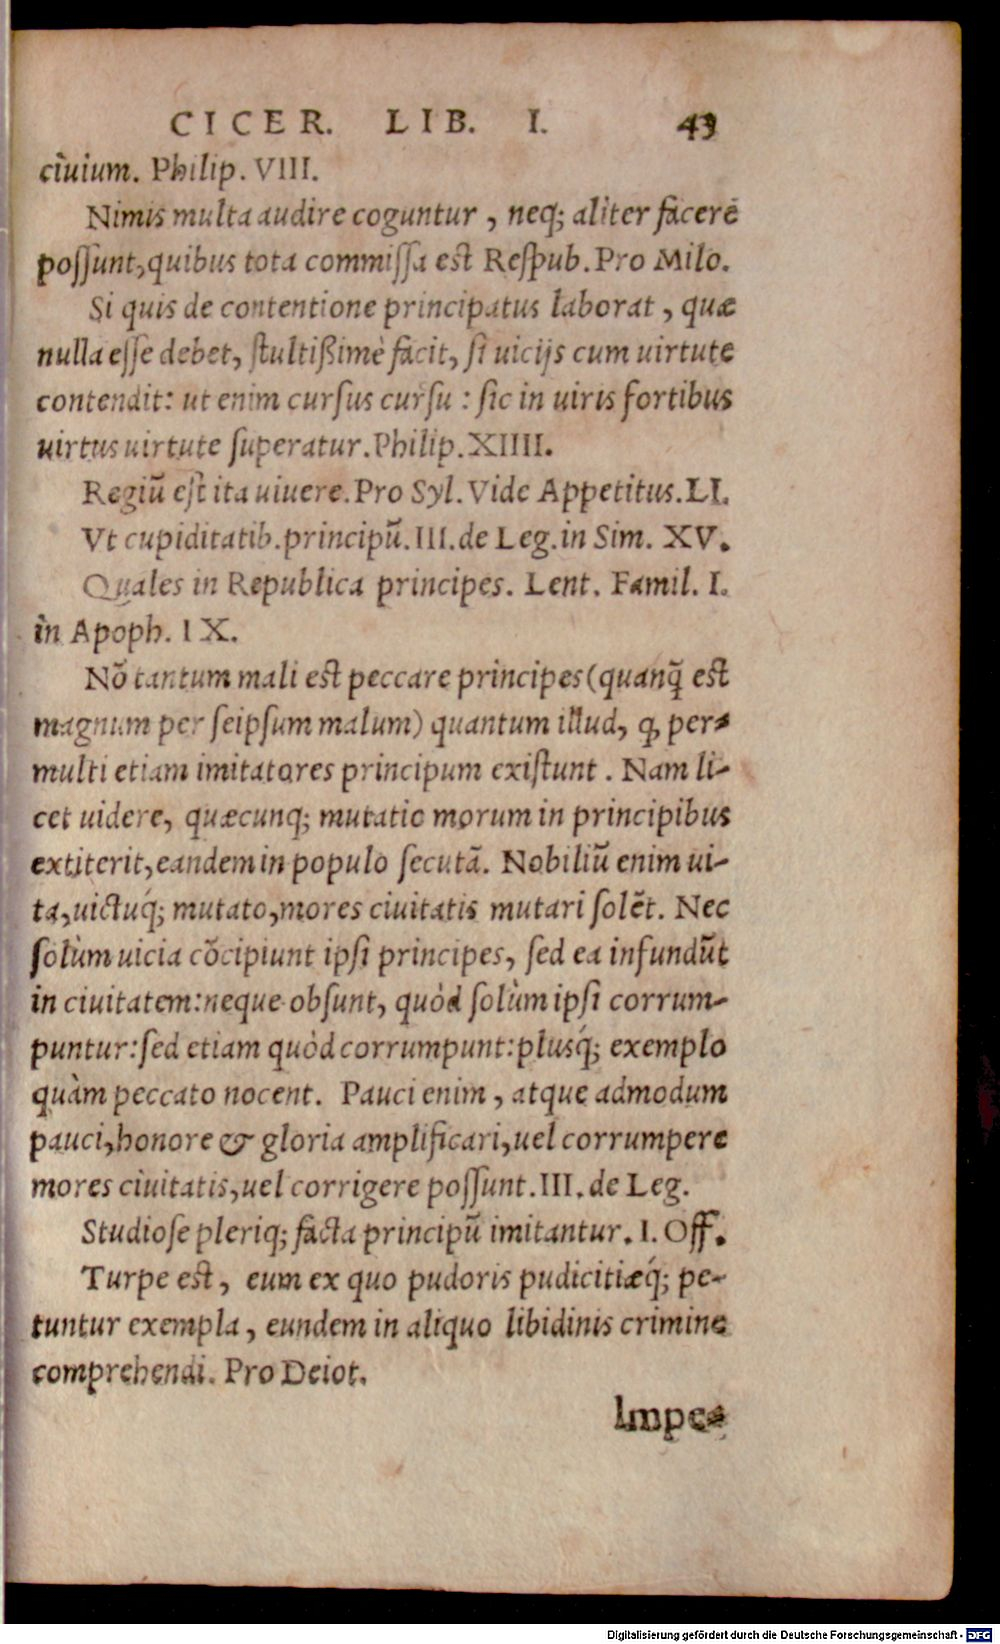 CICER. LIB. I. 43
ciuium. Philip. VIII.
Nimis multa audire coguntur, neq; aliter facere
possunt, quibus tota commissa est Respub. Pro Milo.
Si quis de contentione principatus laborat, quæ
nulla esse debet, stultißimè facit, si uicijs cum uirtute
contendit: ut enim cursus cursu: sic in uiris fortibus
uirtus uirtute superatur. Philip. XIIII.
Regiũ est ita uiuere. Pro Syl. Vide Appetitus. LI.
Vt cupiditatib. principũ. III. de Leg. in Sim. XV.
Quales in Republica principes. Lent. Famil. I.
in Apoph. IX.
Nõ tantum mali est peccare principes (quanq̃ est
magnum per seipsum malum) quantum illud, ꝙ per-
multi etiam imitatores principum existunt. Nam li-
cet uidere, quæcunq; mutatio morum in principibus
extiterit, eandem in populo secutã. Nobiliũ enim ui-
ta, uictuq́; mutato, mores ciuitatis mutari solẽt. Nec
solùm uicia cõcipiunt ipsi principes, sed ea infundũt
in ciuitatem: neque obsunt, quòd solùm ipsi corrum-
puntur: sed etiam quòd corrumpunt: plusq́; exemplo
quàm peccato nocent. Pauci enim, atque admodum
pauci, honore & gloria amplificari, uel corrumpere
mores ciuitatis, uel corrigere possunt. III. de Leg.
Studiose pleriq; facta principũ imitantur. I. Off.
Turpe est, eum ex quo pudoris pudicitiæq́; pe-
tuntur exempla, eundem in aliquo libidinis crimine
comprehendi. Pro Deiot.
Impe-
Digitalisierung gefördert durch die Deutsche Forschungsgemeinschaft - DFG